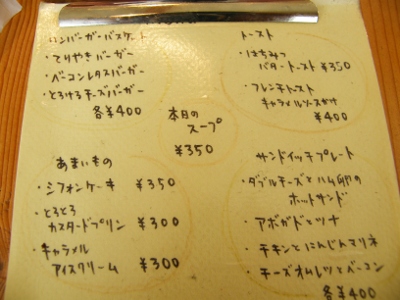 ハンバーガーバスケット
・てりやきバーガー
・ベーコンレタスバーガー
・とろけるチーズバーガー
各¥400
トースト
・はちみつ
バタートースト ¥350
・フレンチトースト
キャラメルソースがけ
¥400
本日の
スープ
¥350
あまいもの
・シフォンケーキ ¥350
・とろとろ
カスタードプリン ¥300
・キャラメル
アイスクリーム ¥300
サンドイッチプレート
・ダブルチーズとハム卵の
ホットサンド
・アボガドとツナ
・チキンとにんじんマリネ
・チーズオムレツとベーコン
各¥400